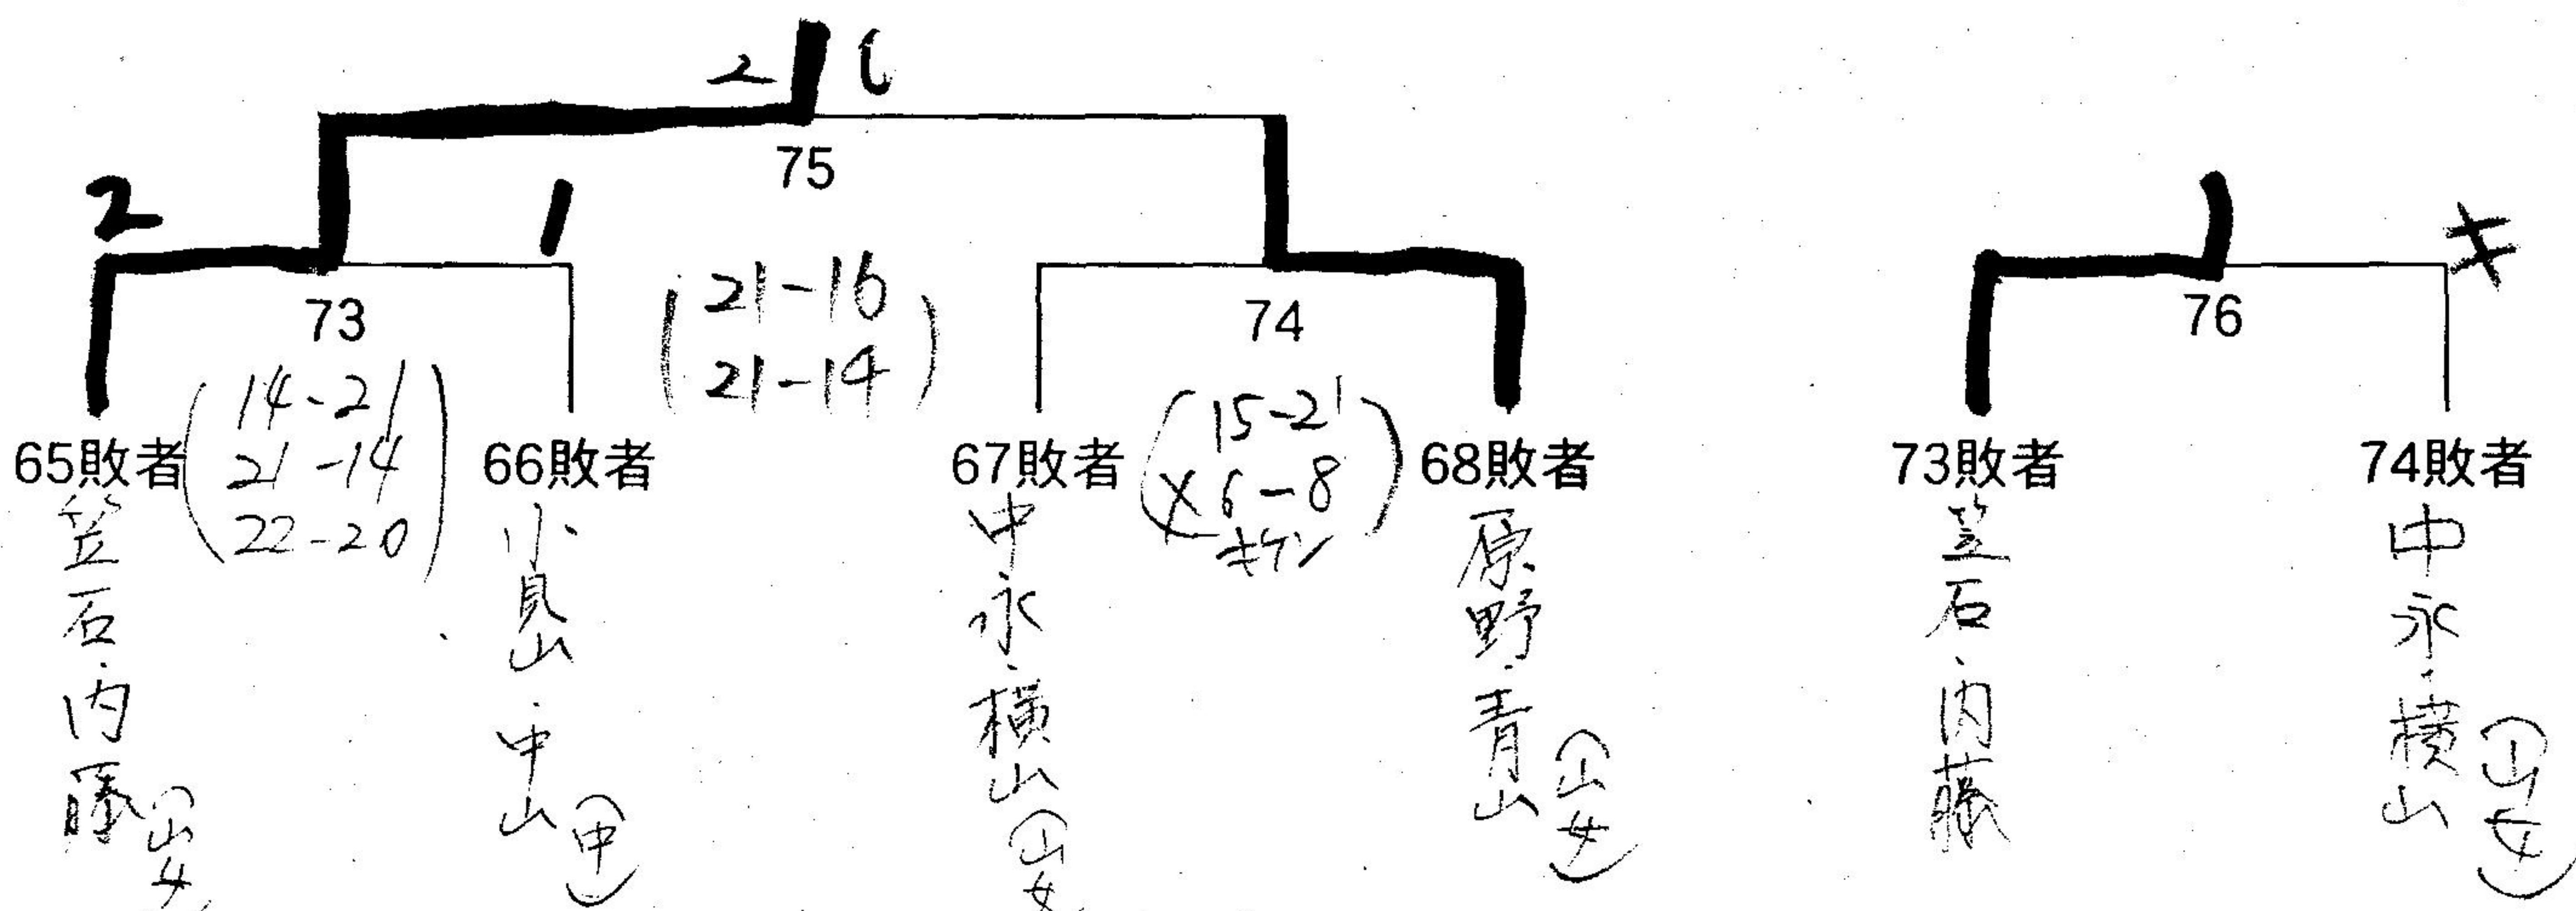 2 0
75
2 1
73
21-16
21-14
74
キ
76
14-21
21-14
22-20
15-21
×6-8
キケン
65敗者 66敗者 67敗者 68敗者 73敗者 74敗者
笠石・内藤(山女
小見山・中山(中)
中永・横山(山女
原野・青山(山女)
笠石・内藤
中永・横山(山女)